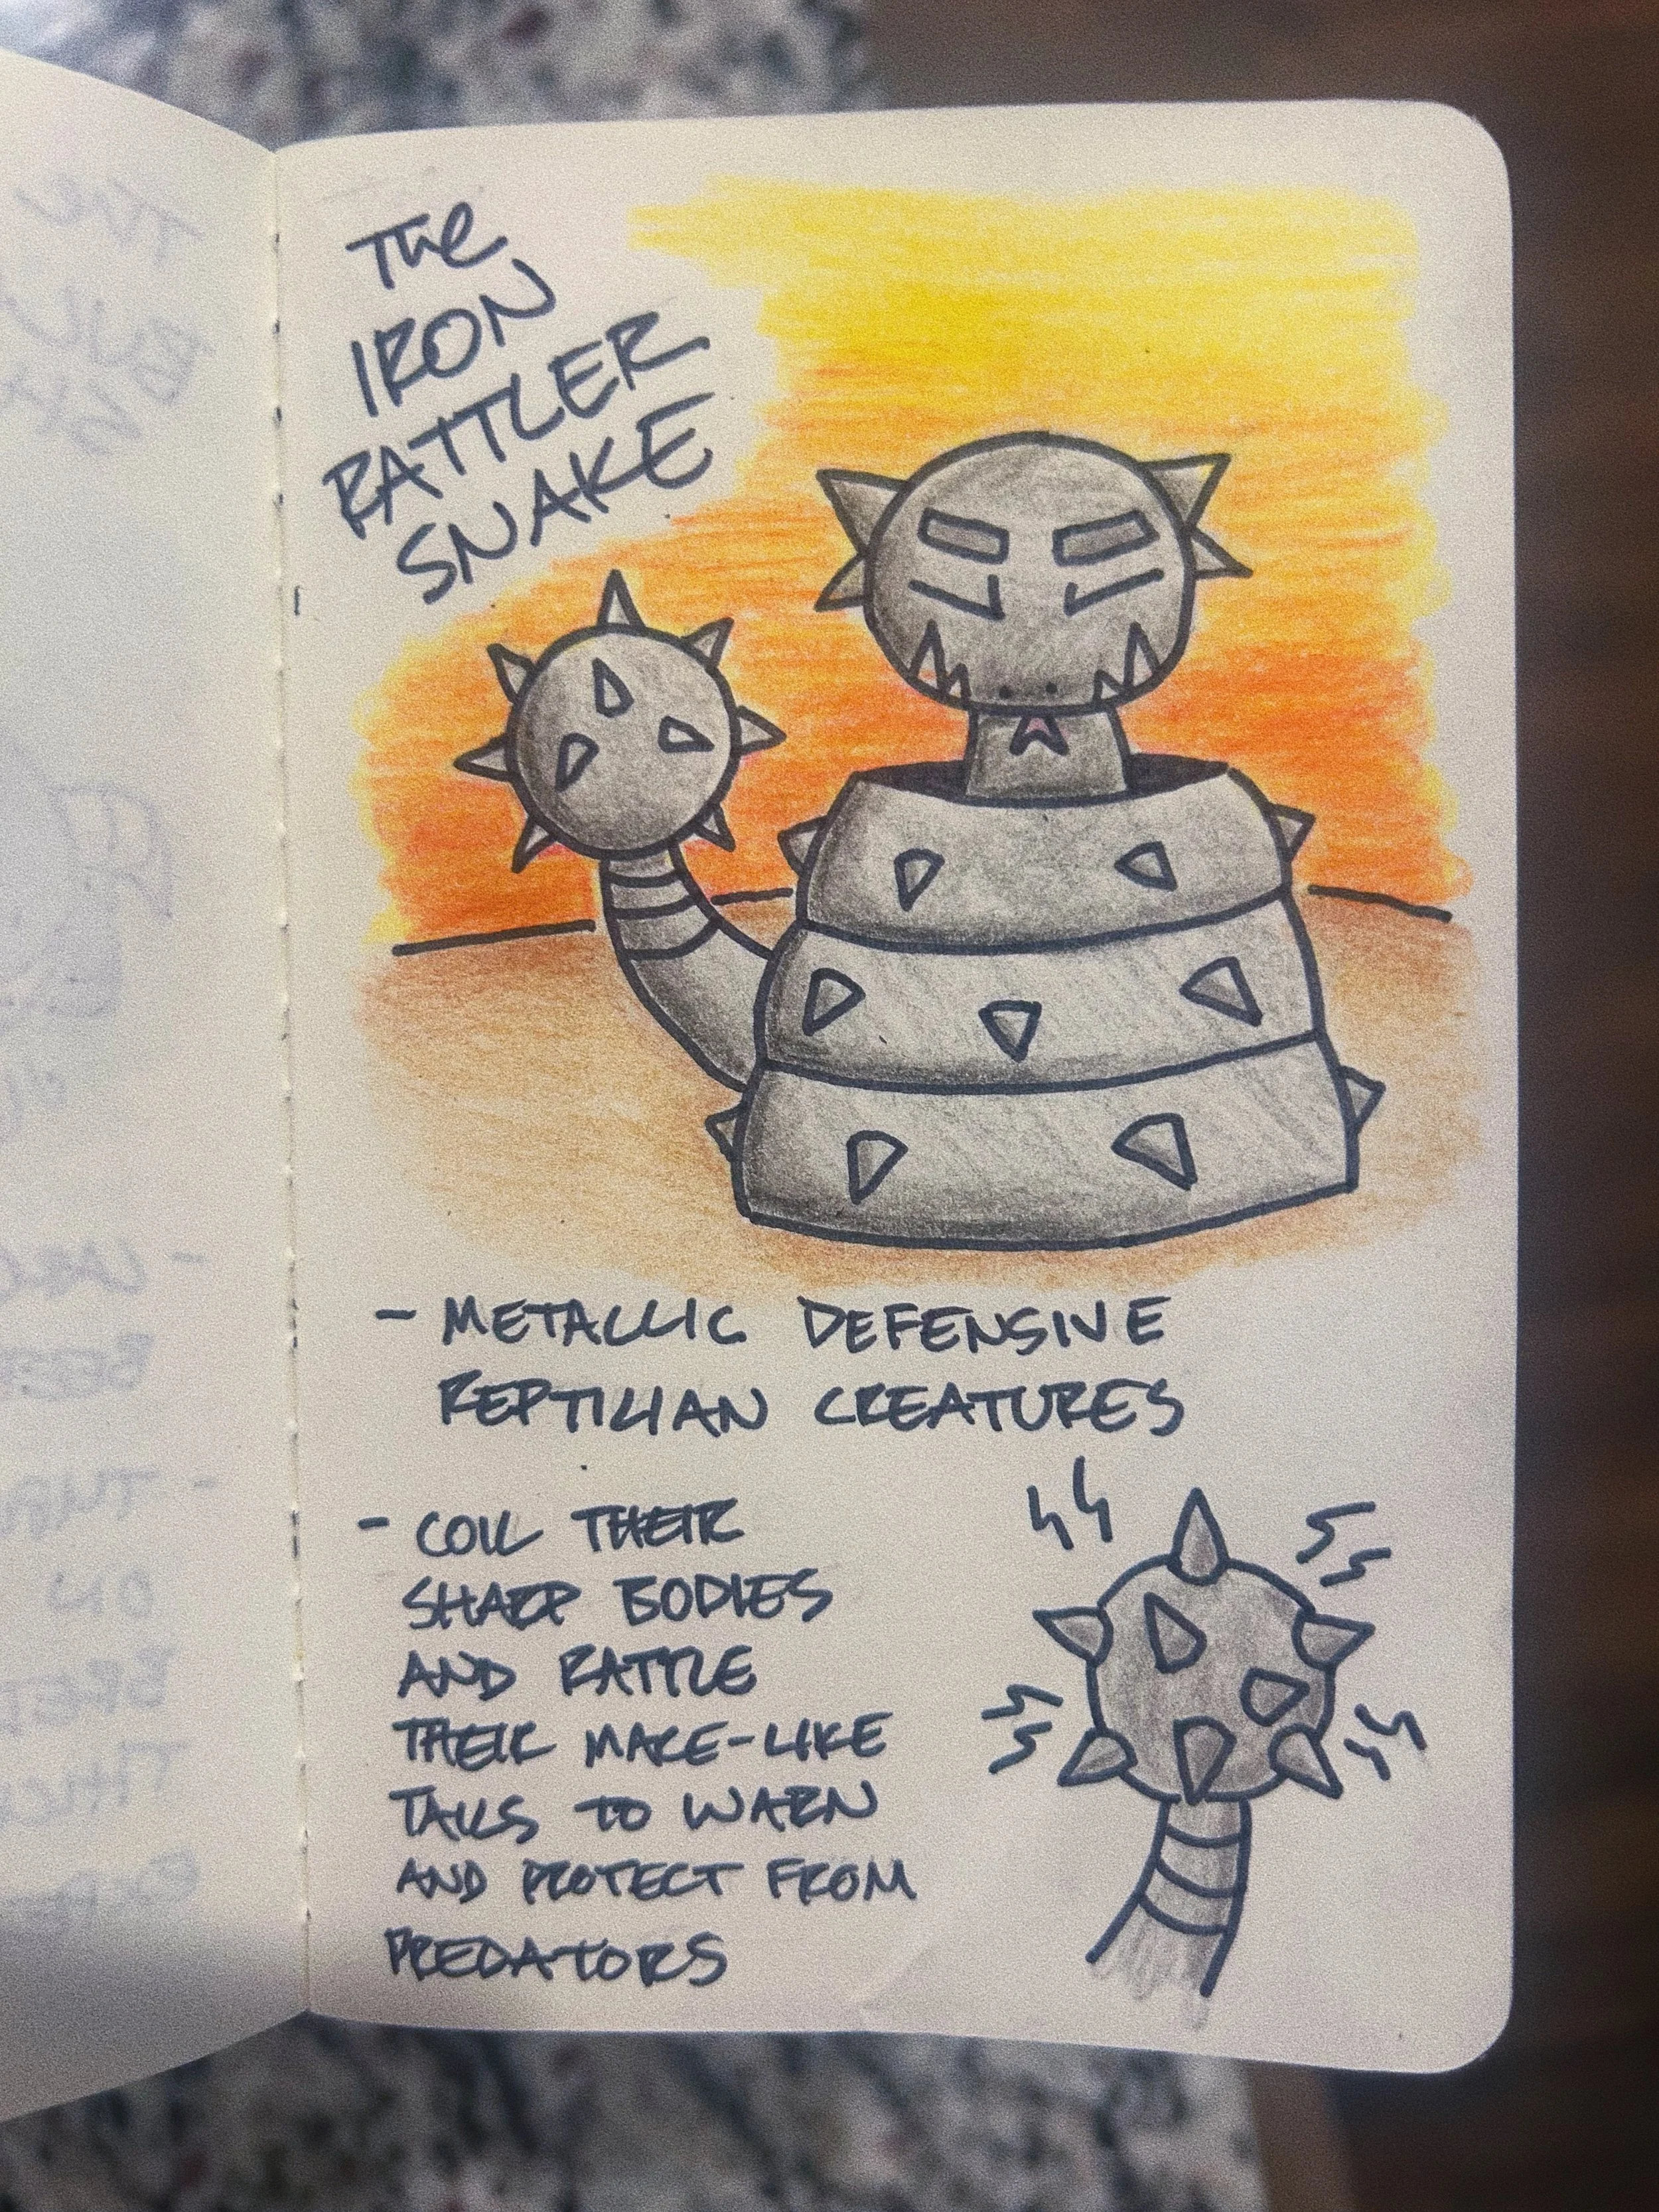 The
IRON
RATTLER
SNAKE
- METALLIC DEFENSIVE
REPTILIAN CREATURES
- COIL THEIR
SHARP BODIES
AND RATTLE
THEIR MACE-LIKE
TAILS TO WARN
AND PROTECT FROM
PREDATORS